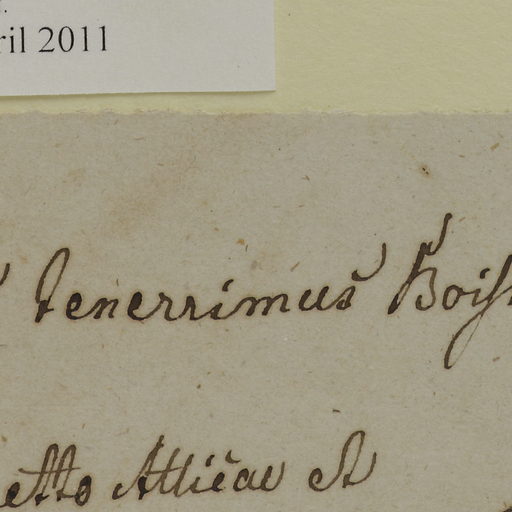 ril 2011
tenerrimus Boiss
etto Atticae et